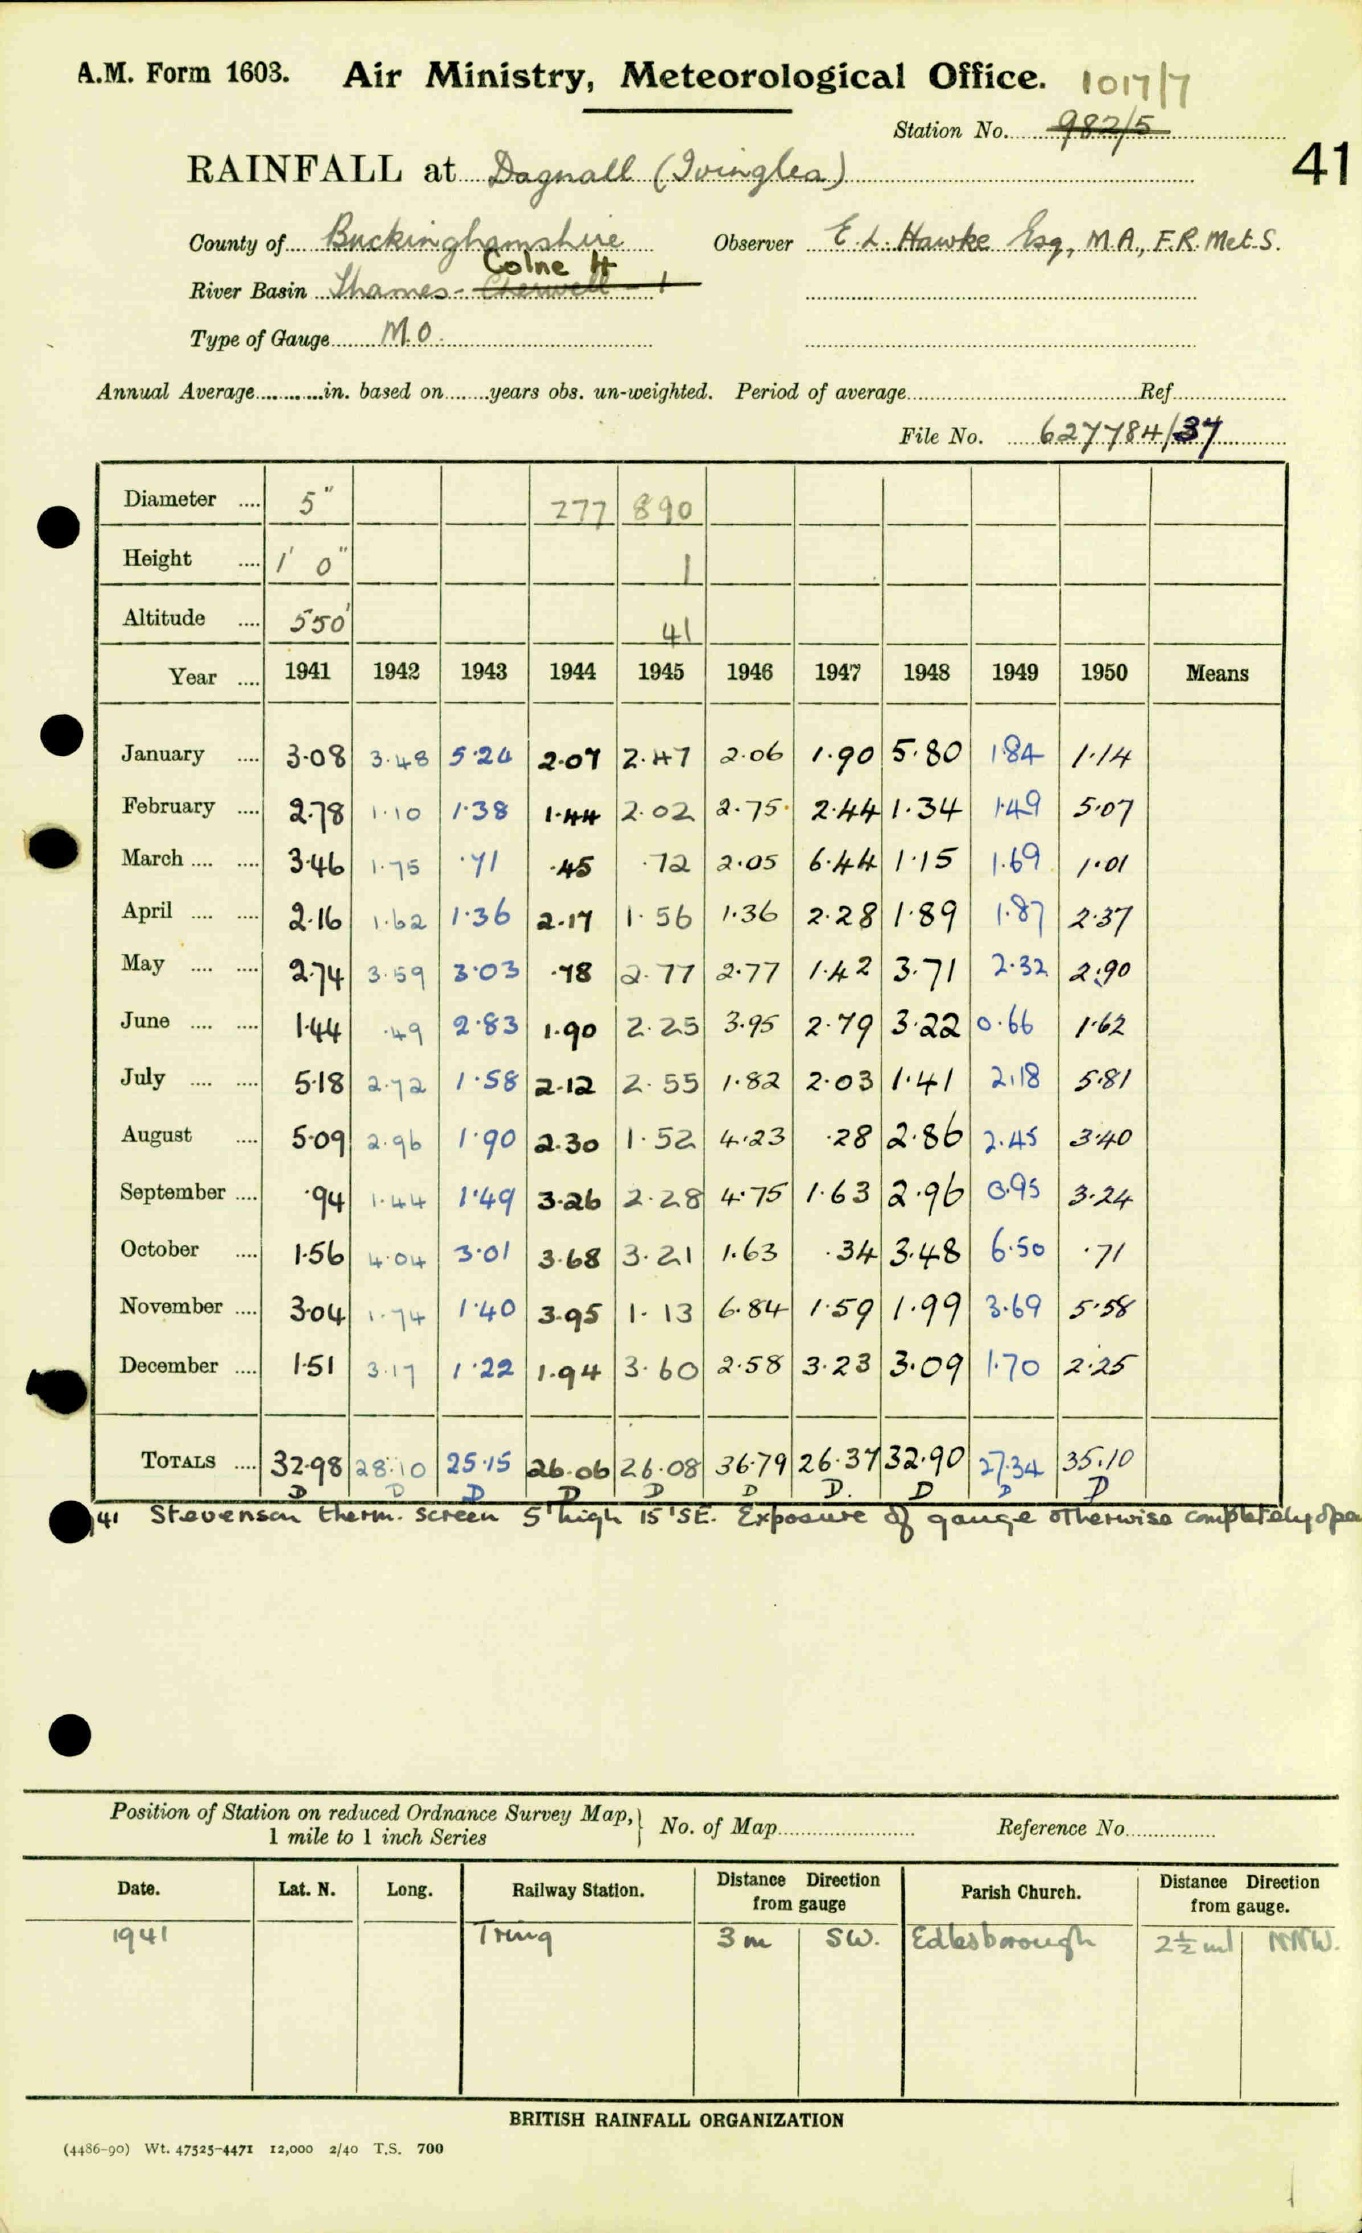 A.M. Form 1603. Air Ministry, Meteorological Office. 1017/7
Station No. 982/5
41
RAINFALL at Dagnall (Ivinglea)
County of Buckinghamshire Observer E. L. Hawke Esq, M.A., F.R.Met.S.
Colne 4
River Basin Thames - Cherwell - 1
Type of Gauge M.O.
Annual Average in. based on years obs. un-weighted. Period of average Ref
File No. 627784/37
Diameter 5" 277 890
Height 1' 0" 1
Altitude 550' 41
Year 1941 1942 1943 1944 1945 1946 1947 1948 1949 1950 Means
January 3.08 3.48 5.24 2.07 2.47 2.06 1.90 5.80 1.84 1.14
February 2.78 1.10 1.38 1.44 2.02 2.75 2.44 1.34 1.49 5.07
March 3.46 1.75 .71 .45 .72 2.05 6.44 1.15 1.69 1.01
April 2.16 1.62 1.36 2.17 1.56 1.36 2.28 1.89 1.87 2.37
May 2.74 3.59 3.03 .78 2.77 2.77 1.42 3.71 2.32 2.90
June 1.44 .49 2.83 1.90 2.25 3.95 2.79 3.22 0.66 1.62
July 5.18 2.72 1.58 2.12 2.55 1.82 2.03 1.41 2.18 5.81
August 5.09 2.96 1.90 2.30 1.52 4.23 .28 2.86 2.45 3.40
September .94 1.44 1.49 3.26 2.28 4.75 1.63 2.96 0.95 3.24
October 1.56 4.04 3.01 3.68 3.21 1.63 .34 3.48 6.50 .71
November 3.04 1.74 1.40 3.95 1.13 6.84 1.59 1.99 3.69 5.58
December 1.51 3.17 1.22 1.94 3.60 2.58 3.23 3.09 1.70 2.25
TOTALS 32.98 28.10 25.15 26.06 26.08 36.79 26.37 32.90 27.34 35.10
D D D D D D D. D D D
41 Stevenson therm. screen 5' high 15' SE. Exposure of gauge otherwise completely open
Position of Station on reduced Ordnance Survey Map, 1 mile to 1 inch Series } No. of Map Reference No.
Date. Lat. N. Long. Railway Station. Distance Direction from gauge Parish Church. Distance Direction from gauge.
1941 Tring 3 m SW. Edlesborough 2½ ml NNW.
BRITISH RAINFALL ORGANIZATION
(4486-90) Wt. 47525-4471 12,000 2/40 T.S. 700